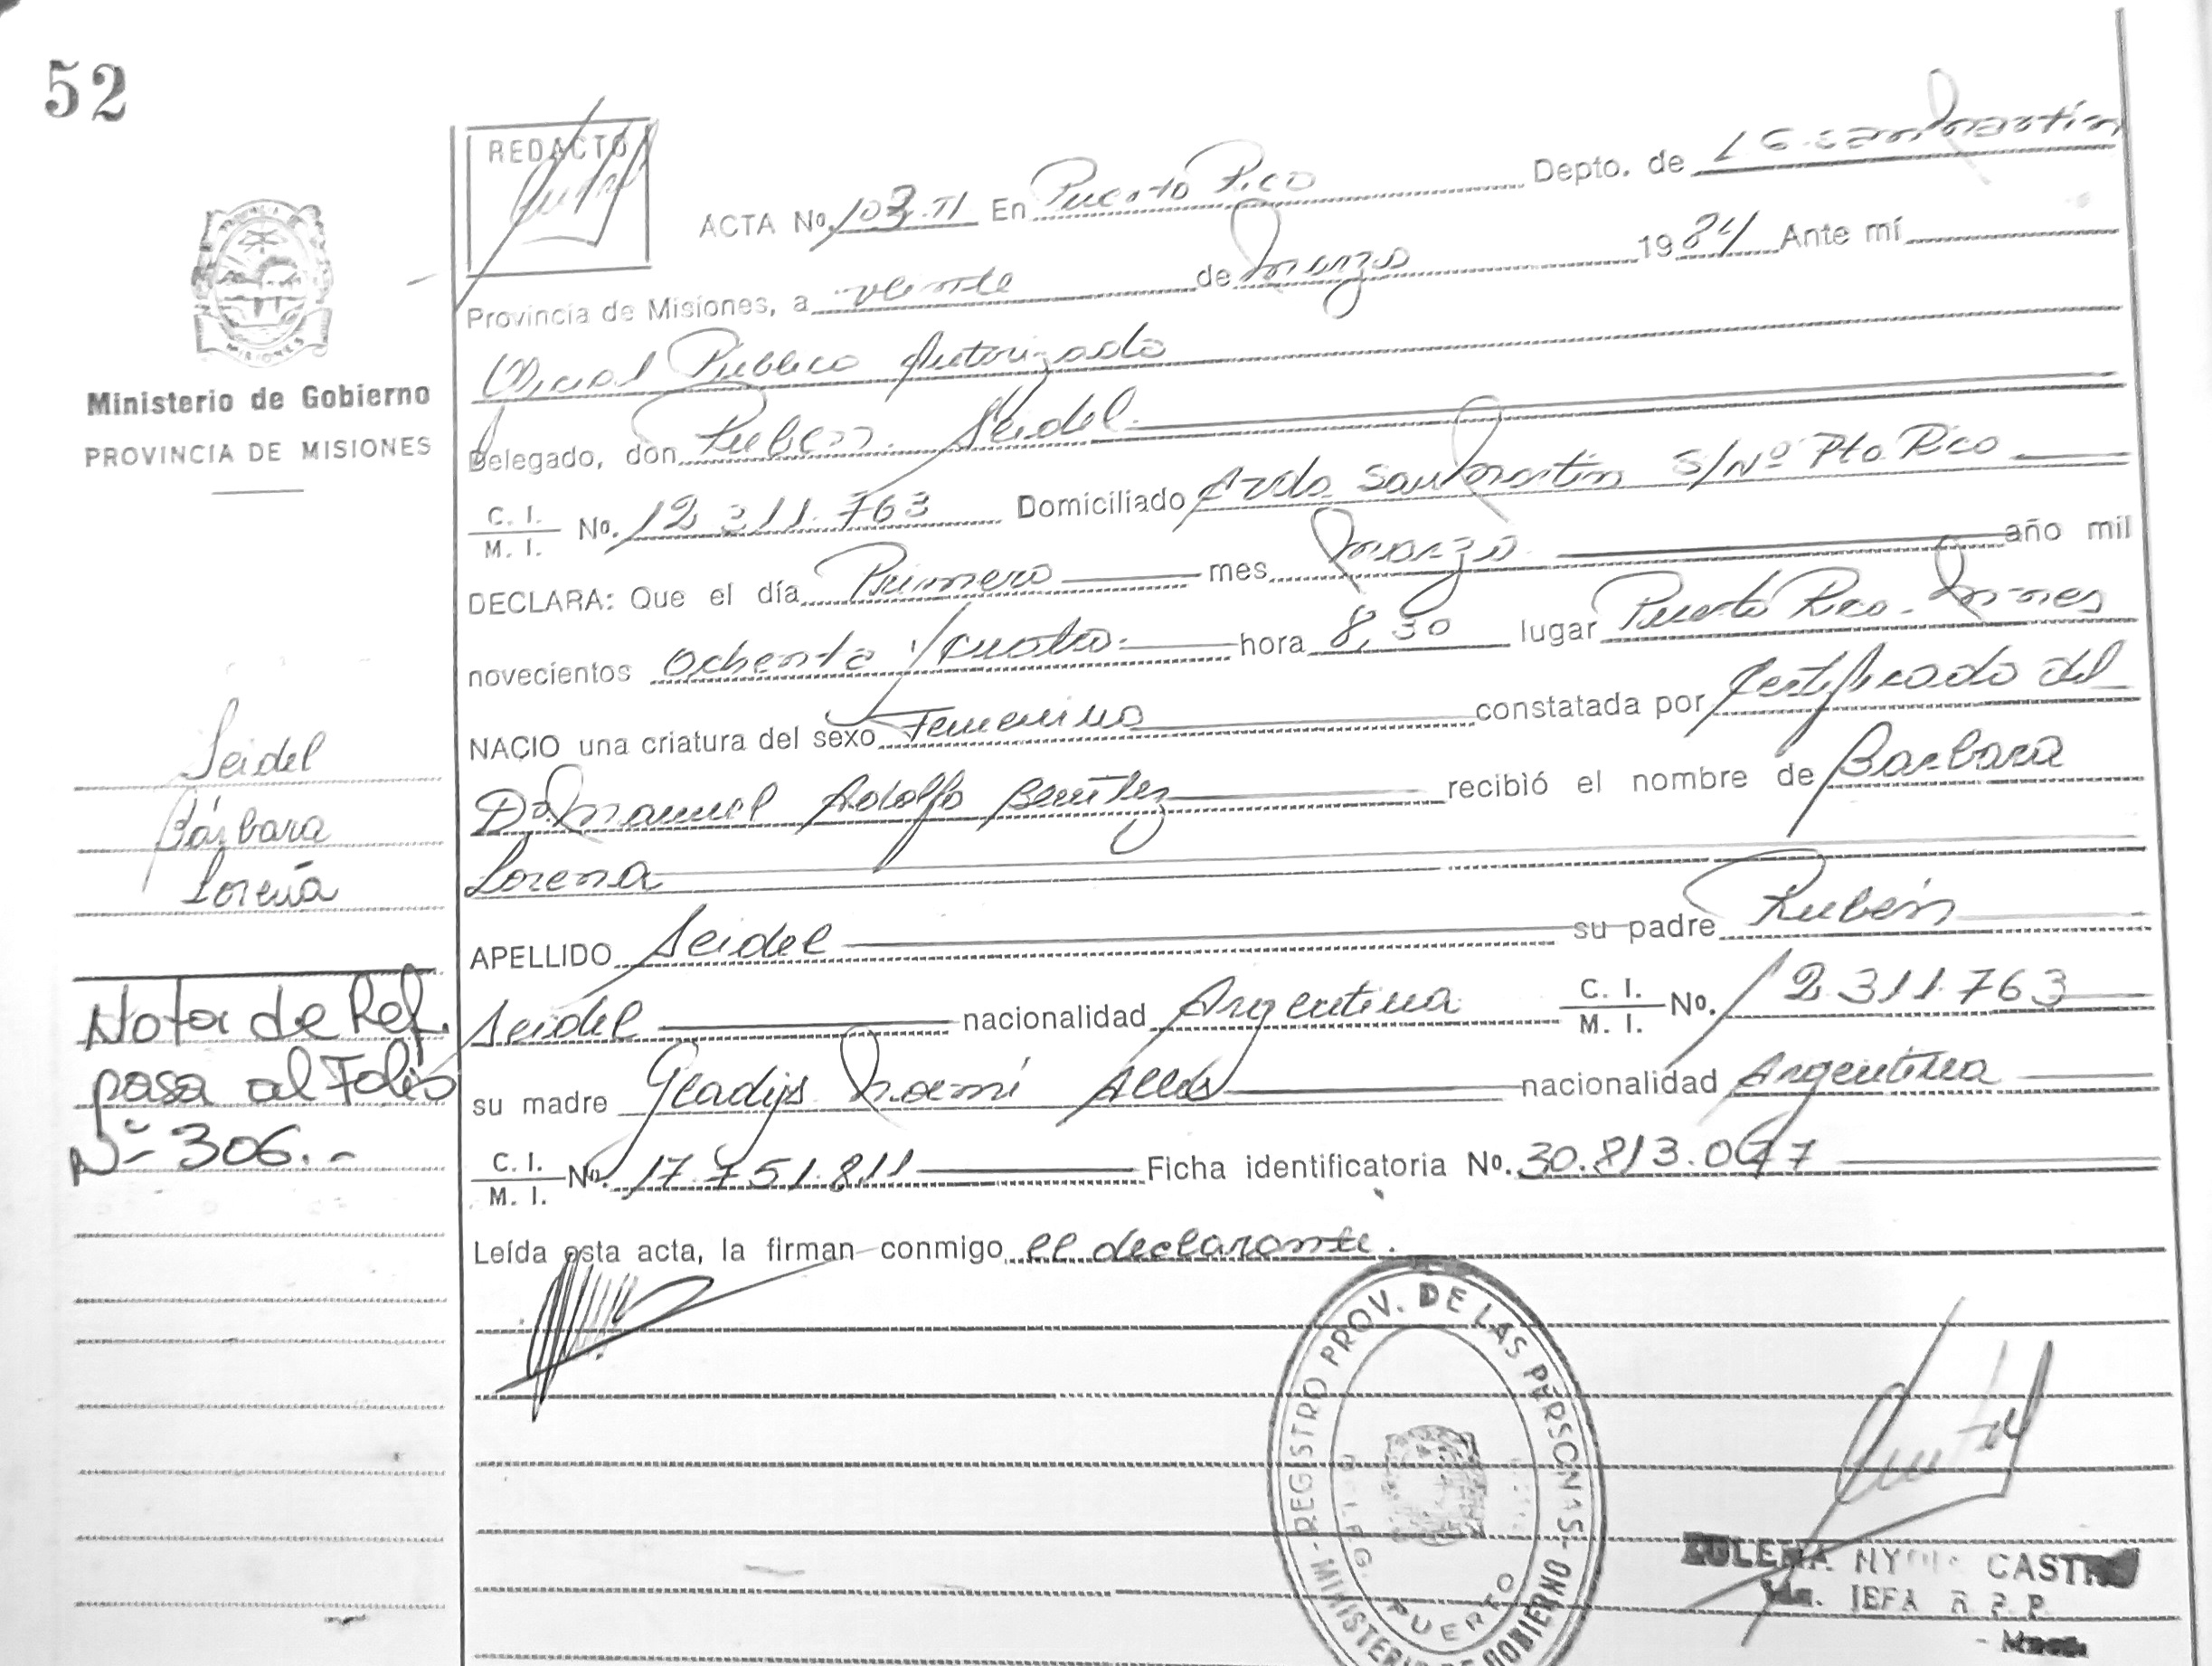 52
REDACTO
ACTA No. 103.TI En Puerto Rico Depto. de L G. San Martín
Provincia de Misiones, a veinte de marzo 1984 Ante mí
Oficial Público Autorizado
Delegado, don Ruben Seidel
C. I. / M. I. No. 12 311.763 Domiciliado Avda San Martín S/Nº Pto Rico
DECLARA: Que el día Primero mes marzo año mil
novecientos Ochenta y cuatro hora 8,30 lugar Puerto Rico - Mnes
NACIO una criatura del sexo Femenino constatada por Certificado del
Dr. Manuel Adolfo Benítez recibió el nombre de Barbara
Lorena
APELLIDO Seidel su padre Rubén
Seidel nacionalidad Argentina C. I. / M. I. No. 12.311.763
su madre Gladys Noemí nacionalidad Argentina
C. I. / M. I. No. 17.751.811 Ficha identificatoria No. 30.813.077
Leída esta acta, la firman conmigo el declarante.
Ministerio de Gobierno
PROVINCIA DE MISIONES
MISIONES
Seidel
Bárbara
Lorena
Nota de Ref.
pasa al Folio
Nº 306.-
REGISTRO PROV. DE LAS PERSONAS - MINISTERIO DE GOBIERNO
PUERTO
CASTRO
JEFA R. P. P.